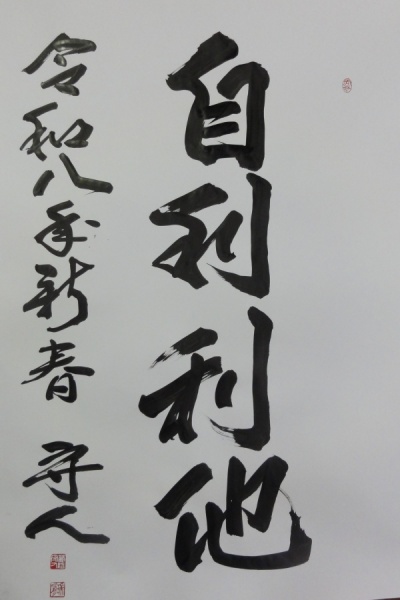 自利利他
令和八年新春 守人